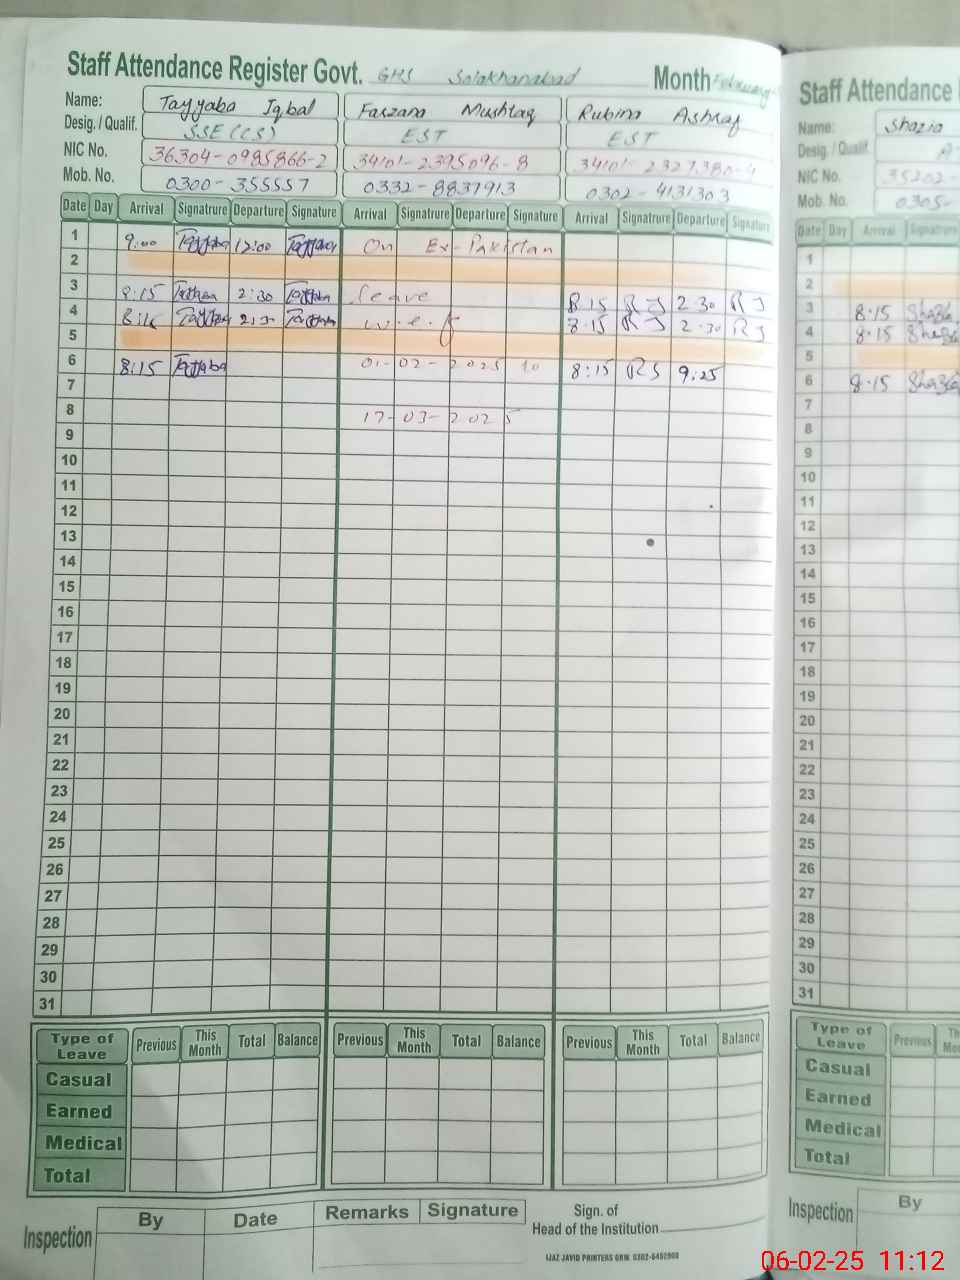 Staff Attendance Register Govt. GHS Salakhanabad Month February
Name: Tayyaba Iqbal Farzana Mushtaq Rubina Ashraf
Desig. / Qualif. SSE (CS) EST EST
NIC No. 36304-0985866-2 34101-2395096-8 34101-2327380-4
Mob. No. 0300-355557 0332-8837913 0302-4131303
Date Day Arrival Signatrure Departure Signature Arrival Signatrure Departure Signature Arrival Signatrure Departure Signature
1 9:00 Tayyaba 12:00 Tayyaba On Ex-Pakistan
2
3 8:15 Tayyaba 2:30 Tayyaba leave 8:15 RJ 2:30 RJ
4 8:15 Tayyaba 2:30 Tayyaba w.e.f 8:15 RJ 2:30 RJ
5
6 8:15 Tayyaba 01-02-2025 to 8:15 RJ 9:25
7
8 17-03-2025
9
10
11
12
13
14
15
16
17
18
19
20
21
22
23
24
25
26
27
28
29
30
31
Type of Leave Previous This Month Total Balance Previous This Month Total Balance Previous This Month Total Balance
Casual
Earned
Medical
Total
Inspection By Date Remarks Signature Sign. of
Head of the Institution
IJAZ JAVID PRINTERS GRW. 0302-6452903
Staff Attendance
Name: Shazia
Desig. / Qualif.
NIC No. 35202-
Mob. No. 0305-
Date Day Arrival Signatrure
1
2
3 8:15 Shazia
4 8:15 Shazia
5
6 8:15 Shazia
7
8
9
10
11
12
13
14
15
16
17
18
19
20
21
22
23
24
25
26
27
28
29
30
31
Type of Leave Previous
Casual
Earned
Medical
Total
Inspection By
06-02-25 11:12